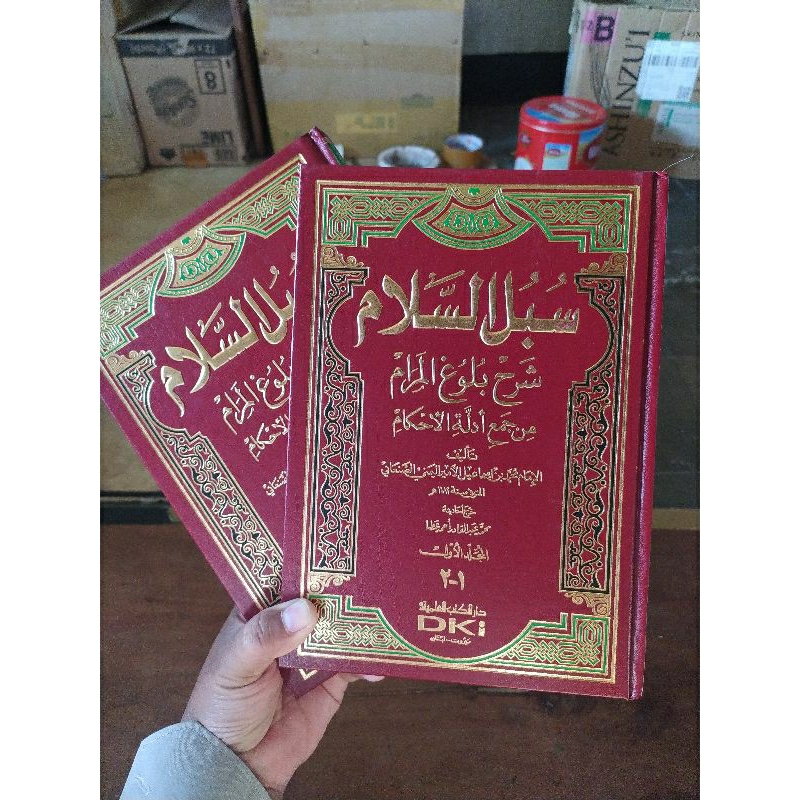 سُبُلُ السَّلَام
شَرْح بُلُوغ المَرَامْ
مِن جَمْعِ أَدِلَّةِ الأَحْكَامْ
تأليف
الإمام محمد بن إسماعيل الأمير اليمني الصنعاني
المتوفى سنة ١١٨٢ هـ
محمد عبد القادر أحمد عطا
المجلد الأول
١-٢
دار الكتب العلمية
DKi
بيروت - لبنان
سُبُلُ السَّلَام
بُلُوغ المَرَامْ
الأَحْكَامْ
SHINZU'I
B
8
LIME